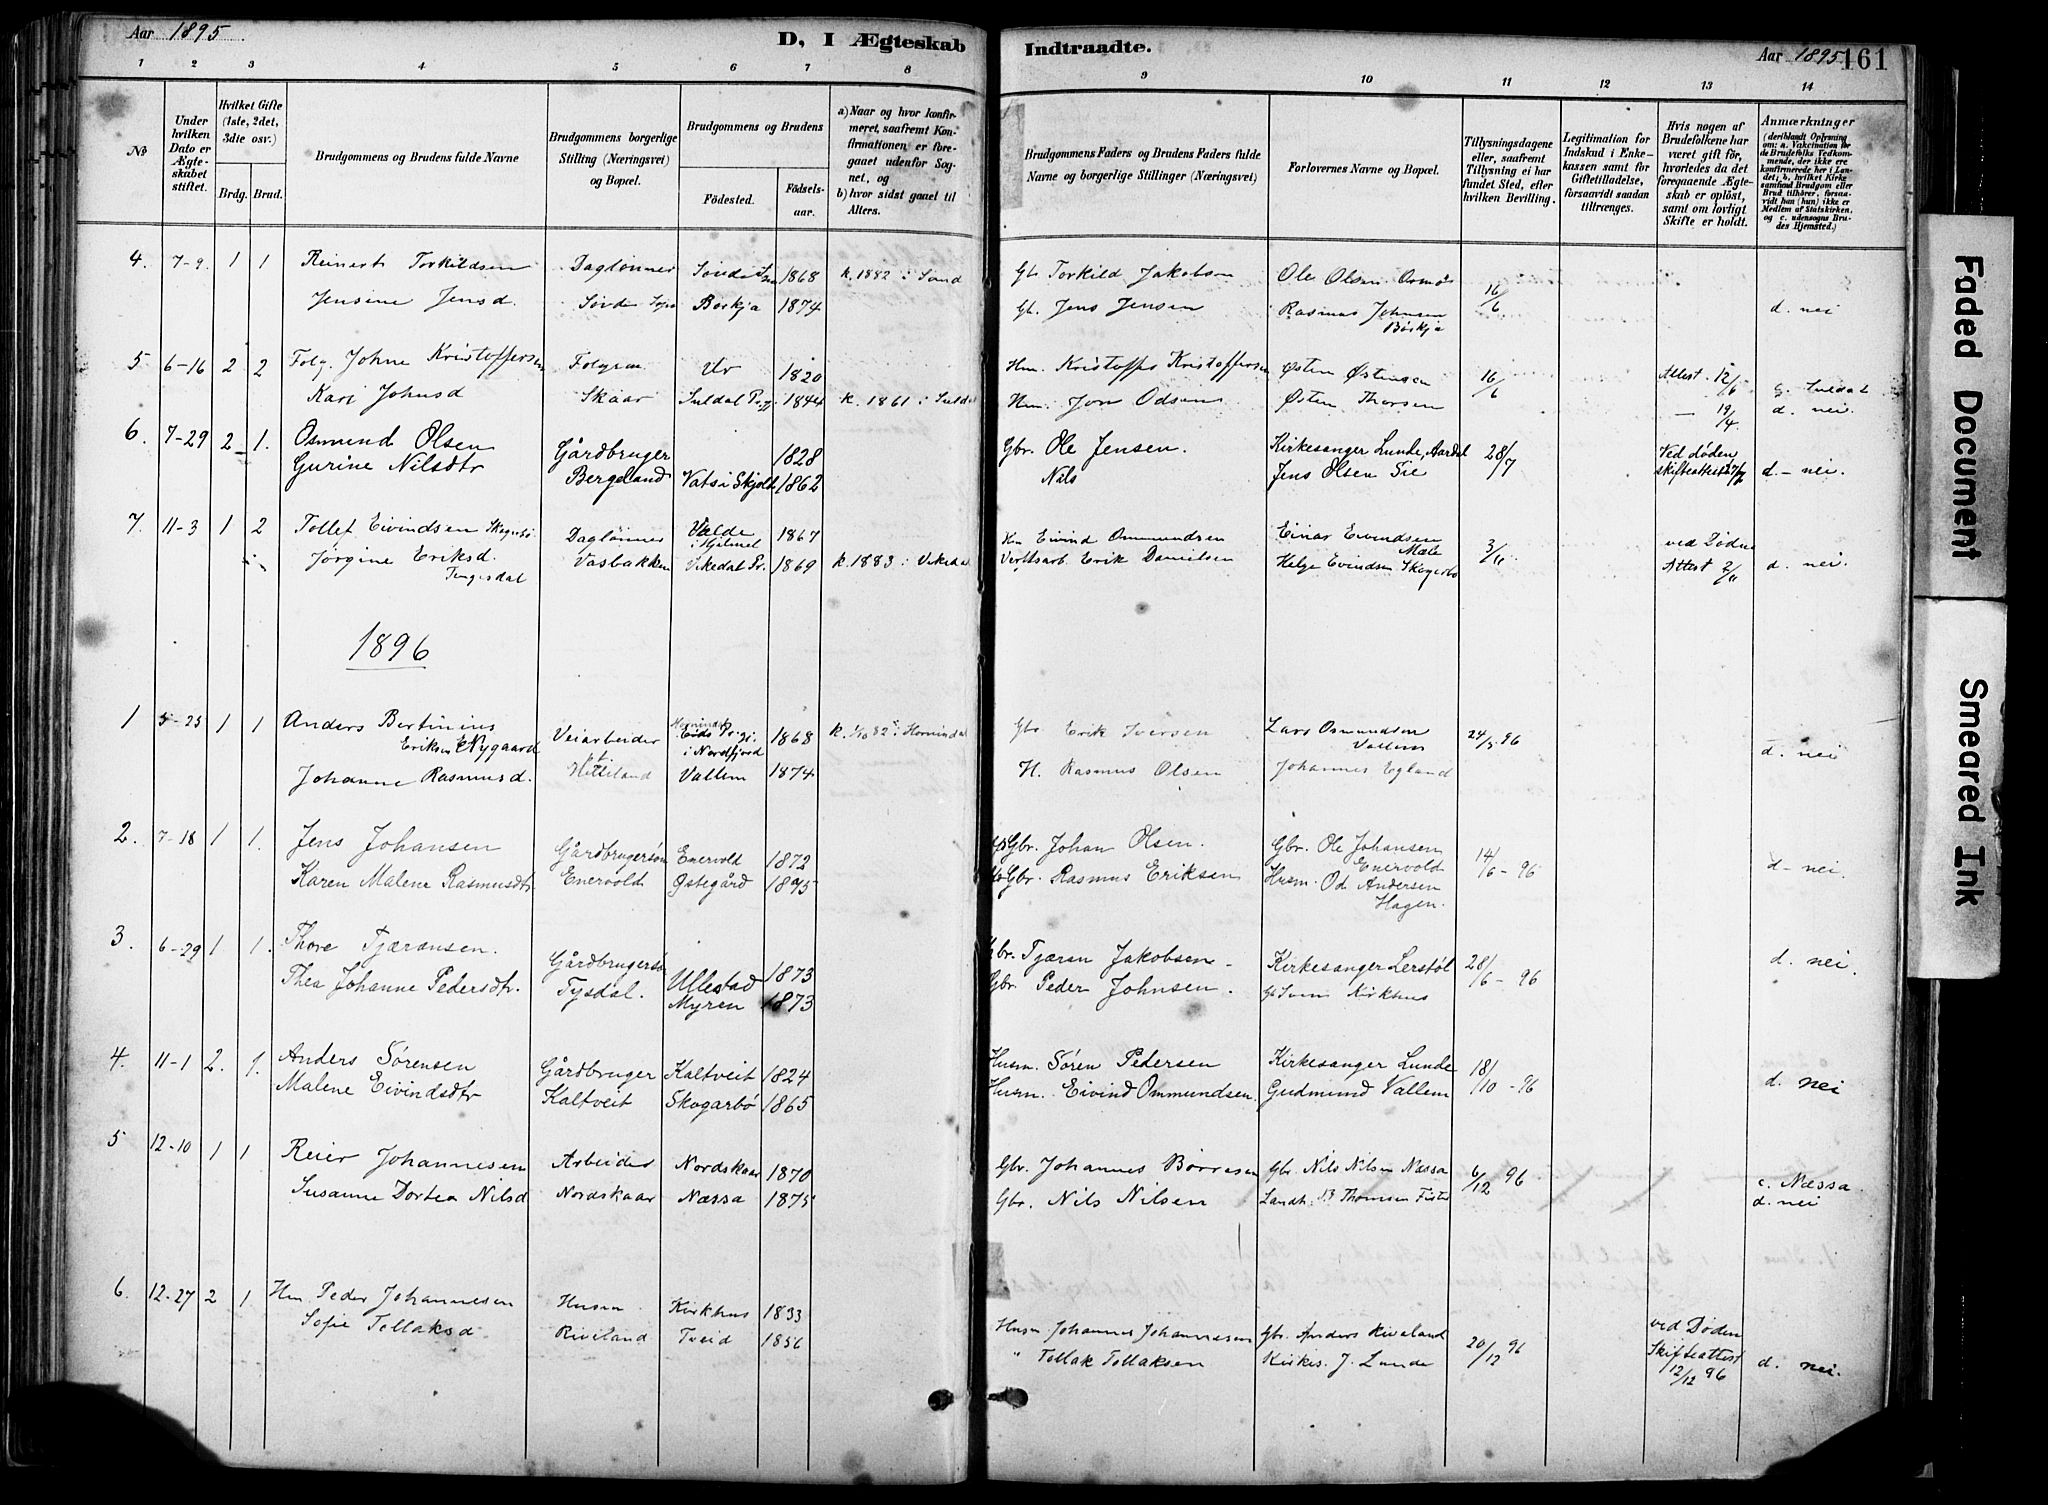 Aar 1895
D, I Ægteskab Indtraadte.
Aar 1895 161
1 2 3 4 5 6 7 8 9 10 11 12 13 14
No
Under hvilken Dato er Ægteskabet stiftet.
Hvilket Gifte (1ste, 2det, 3die osv.)
Brdg. Brud.
Brudgommens og Brudens fulde Navne
Brudgommens borgerlige Stilling (Næringsvei) og Bopæl.
Brudgommens og Brudens
Fødested. Fødselsaar.
a) Naar og hvor konfirmeret, saafremt Konfirmationen er foregaaet udenfor Sognet, og b) hvor sidst gaaet til Alters.
Brudgommens Faders og Brudens Faders fulde Navne og borgerlige Stillinger (Næringsvei)
Forlovernes Navne og Bopæl.
Tillysningsdagene eller, saafremt Tillysning ei har fundet Sted, efter hvilken Bevilling.
Legitimation for Indskud i Enkekassen samt for Giftetilladelse, forsaavidt saadan tiltrænges.
Hvis nogen af Brudefolkene har været gift før, hvorledes da det foregaaende Ægteskab er opløst, samt om lovligt Skifte er holdt.
Anmærkninger (deriblandt Oplysning om: a. Vaccination for de Brudefolks Vedkommende, der ikke ere konfirmerede her i Landet; b. hvilket Kirkesamfund Brudgom eller Brud tilhører, forsaavidt han (hun) ikke er Medlem af Statskirken, og c. udensogns Brudes Hjemsted.)
4. 7-9 1 1 Reinert Torkildsen Daglønner Søndre 1868 k. 1882 i Sønd Gb. Torkild Jakobsen Ole Olsen Osmo 16/6
Jensine Jensd. Søndre Børkja 1874 Gb. Jens Jensen Rasmus Johnsen Børkja d. nei
5. 6-16 2 2 Folg. Johne Kristoffersen Folgem. Ur 1820 Hm. Kristoffer Kristoffersen Østen Østensen 16/6 Attest 12/6 c. Suldal
Kari Johnsd Skaar Suldal Prgj. 1844 k. 1861 i Suldal Hm. Jon Odsen Østen Thorsen — 19/4 d. nei.
6. 7-29 2 1. Osmund Olsen Gårdbruger 1828 Gbr. Ole Jensen. Kirkesanger Lunde, Aardal 28/7 Ved døden
Gurine Nilsdtr Bergeland Vats i Skjold 1862 Nils Jens Olsen Tie skifteattest 27/7 d - nei.
7. 11-3 1 2 Tollef Eivindsen Skogerbø Daglønner Valde i Hjelmel 1867 Hm Eivind Ommundsen Einar Eivindsen Mæle 3/11 ved Døden
Jørgine Eriksd. Tengesdal Vasbakken Vikedal Pr. 1869 k. 1883 i Vikedal Verftsarb. Erik Danielsen Helge Eivindsen Skogerbø Attest 2/11 d. nei.
1896
1 5-25 1 1 Anders Bertinius Eriksen Nygaard Veiarbeider Hornindal Eids Prgj. i Nordfjord 1868 k. 82 i Hornindal Gbr Erik Iversen Lars Osmundsen Vallem 24/5 96
Johanne Rasmusd. Hetteland Vallem 1874 H. Rasmus Olsen Johannes Egland d. nei
2. 7-18 1 1. Jens Johansen Gårdbrugersøn Enervold 1872 Gbr. Johan Olsen. Gbr. Ole Johansen Enervold 14/6 - 96
Karen Malene Rasmusdtr Enervold Østegård 1875 Gbr. Rasmus Eriksen Hrsm. Od Andersen Hagen. d - nei.
3. 6-29 1 1. Thore Tjæransen. Gårdbrugersøn Ullestad 1873 Gbr. Tjæran Jakobsen - Kirkesanger Lerstøl 28/6 - 96 d. nei.
Thea Johanne Pedersdtr. Tysdal. Myren 1873 Gbr. Peder Johnsen. Kirkhus
4. 11-1 2. 1. Anders Sørensen Gårdbruger Kaltveit 1824 Husm. Sören Pedersen Kirkesanger Lunde 18/10 - 96
Malene Eivindsdtr Kaltveit Skogarbø 1865 Husm. Eivind Ommundsen. Gudmund Vallem d. nei
5 12-10 1 1 Reier Johannesen Arbeider Nordskaar 1870 Gbr. Johannes Børresen Gbr. Nils Nilsen Næssa 6/12 96 c. Næssa.
Susanne Dortea Nilsd Nordskaar Næssa 1875 Gbr. Nils Nilsen Landh. Thomsen Fister d. nei
6. 12-27 2 1 Hm Peder Johannesen Husm. Kirkhus 1833 Husm Johannes Johannesen Gbr. Anders Riveland 20/12 96 ved Døden
Sofie Tollaksd Riveland Tveid 1856 " Tollak Tollaksen Kirkes. J. Lunde Skifteattest 12/12 96 d. nei.
Faded Document
Smeared Ink